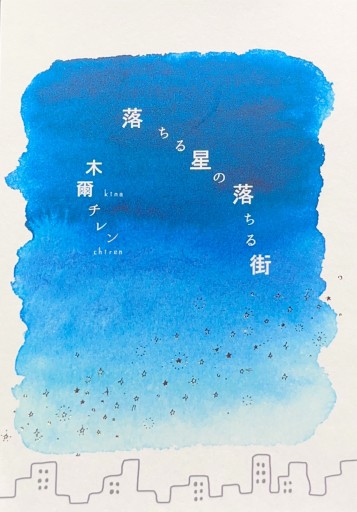 落ちる星の落ちる街
木爾チレン
kina
chiren